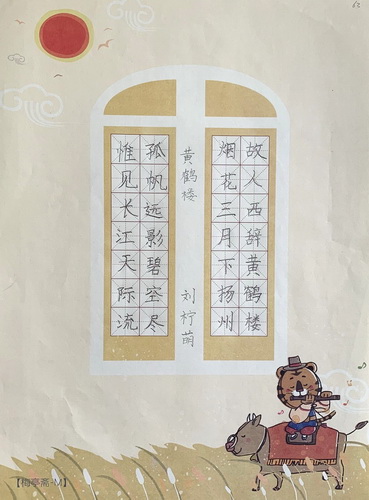 故人西辞黄鹤楼
烟花三月下扬州
黄鹤楼 刘柠萌
孤帆远影碧空尽
惟见长江天际流